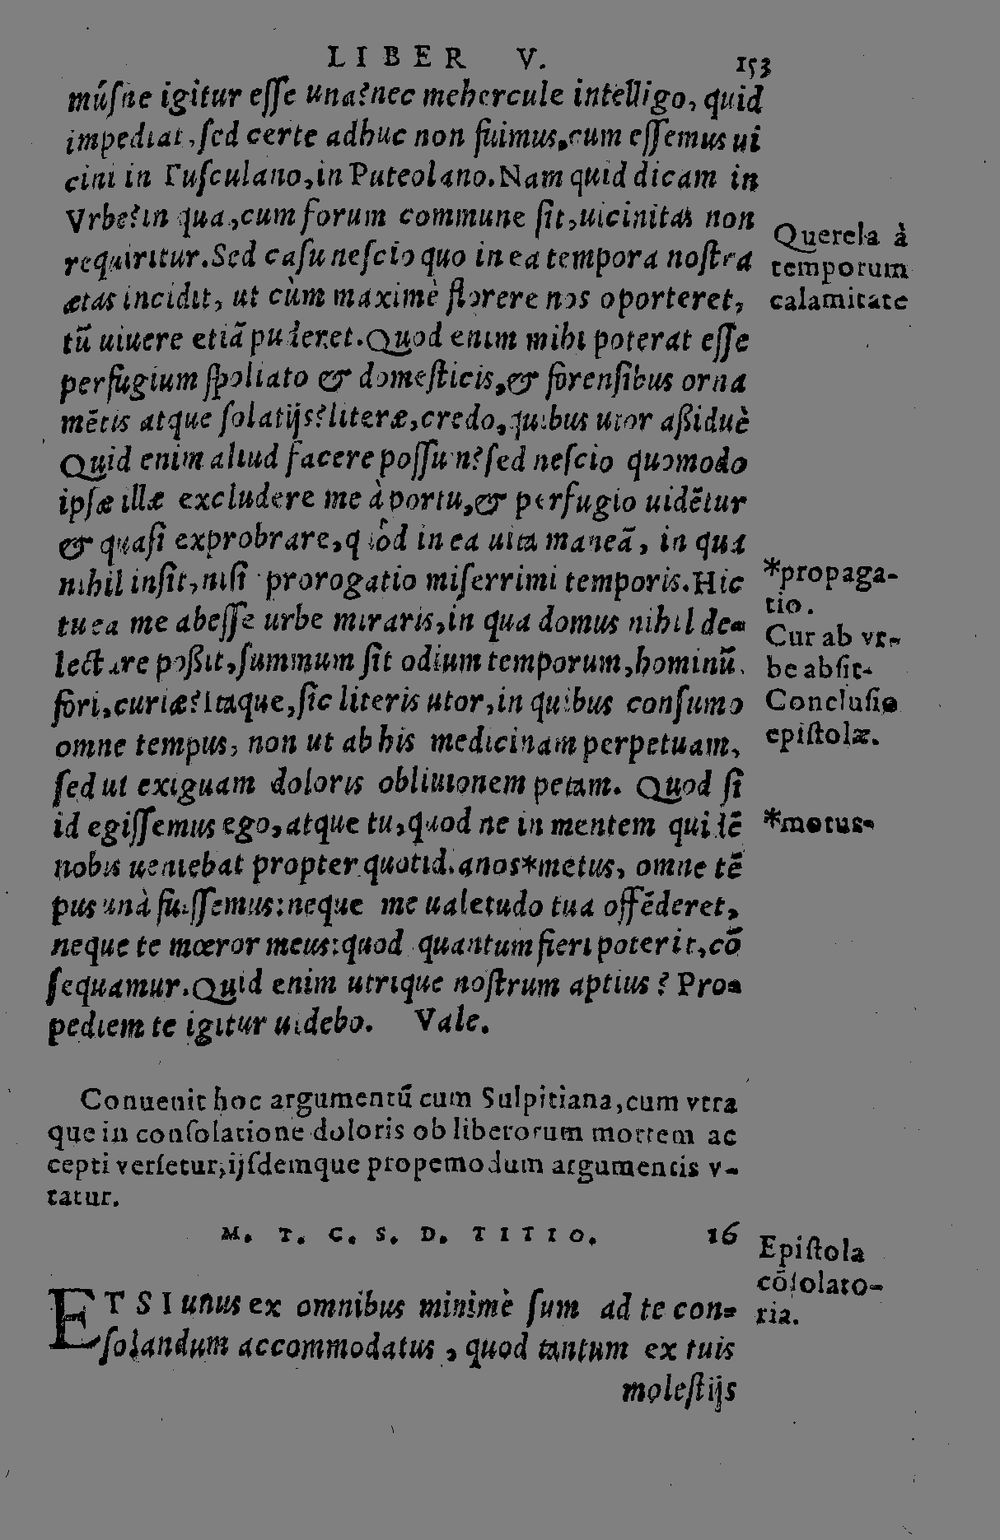 LIBER V. 153
múſne igitur eſſe una? nec mehercule intelligo, quid
impediat, ſed certe adhuc non fuimus, cum eſſemus ui
cini in Tuſculano, in Puteolano. Nam quid dicam in
Vrbe? in qua, cum forum commune ſit, uicinitas non
requiritur. Sed caſu neſcio quo in ea tempora noſtra
ætas incidit, ut cùm maximè florere nos oporteret,
tũ uiuere etiã puderet. Quod enim mihi poterat eſſe
perfugium ſpoliato & domeſticis, & forenſibus orna
mẽtis atque ſolatijs? literæ, credo, quibus utor aßiduè
Quid enim aliud facere poſſum? ſed neſcio quomodo
ipſæ illæ excludere me à portu, & perfugio uidẽtur
& quaſi exprobrare, quòd in ea uita maneã, in qua
nihil inſit, niſi prorogatio miſerrimi temporis. Hic
tu ea me abeſſe urbe miraris, in qua domus nihil de-
lectare poßit, ſummum ſit odium temporum, hominũ
fori, curiæ? Itaque, ſic literis utor, in quibus conſumo
omne tempus, non ut ab his medicinam perpetuam,
ſed ut exiguam doloris obliuionem petam. Quod ſi
id egiſſemus ego, atque tu, quod ne in mentem quidẽ
nobis ueniebat propter quotidianos *metus, omne tẽ
pus unà fuiſſemus: neque me ualetudo tua offẽderet,
neque te mœror meus: quod quantum fieri poterit, cõ
ſequamur. Quid enim utrique noſtrum aptius? Pro-
pediem te igitur uidebo. Vale.
Querela à
temporum
calamitate
*propaga-
tio.
Cur ab vr-
be abſit.
Concluſio
epiſtolæ.
*motus.
Conuenit hoc argumentũ cum Sulpitiana, cum vtra
que in conſolatione doloris ob liberorum mortem ac
cepti verſetur, ijſdemque propemodum argumentis v-
tatur.
M. T. C. S. D. TITIO. 16
ETSI unus ex omnibus minimè ſum ad te con-
ſolandum accommodatus, quod tantum ex tuis
moleſtijs
Epiſtola
cõſolato-
ria.